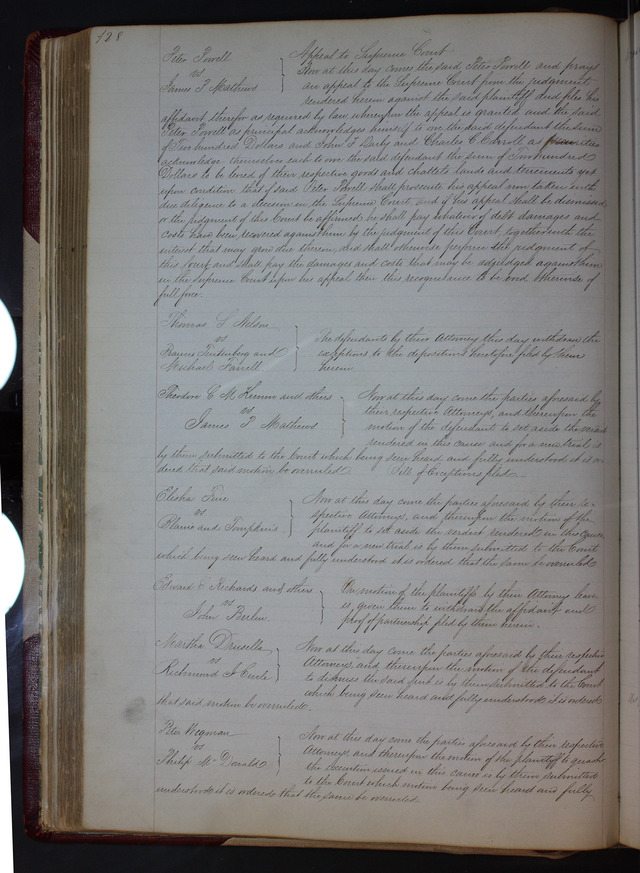 128
Peter Powell
vs
James T Mathews
Appeal to Supreme Court
Now at this day comes the said Peter Powell and prays
an appeal to the Supreme Court from the judgment
rendered herein against the said plaintiff and files his
affidavit therefor as required by law whereupon the appeal is granted and the said
Peter Powell as principal acknowledges himself to owe the said defendant the sum
of Two hundred Dollars and John F Darby and Charles C Carroll as securities
acknowledge themselves each to owe the said defendant the sum of Two hundred
Dollars to be levied of their respective goods and chattels lands and tenements yet
upon condition that if said Peter Powell shall prosecute his appeal now taken with
due diligence to a decision in the Supreme Court and if his appeal shall be dismissed
or the judgment of this Court be affirmed he shall pay whatever of debt damages and
costs have been recovered against him by the judgment of this Court, together with the
interest that may grow due thereon, and shall otherwise perform the judgment of
this Court and shall pay the damages and costs that may be adjudged against him
in the Supreme Court upon his appeal then this recognizance to be void otherwise of
full force.
Thomas S Nelson
vs
Francis and
Michael Farrell
The defendants by their Attorney this day withdraw the
exceptions to the depositions heretofore filed by them
herein
Theodore C and others
vs
James T Mathews
Now at this day come the parties aforesaid by
their respective Attorneys, and thereupon the
motion of the defendant to set aside the verdict
rendered in this cause and for a new trial is
by them submitted to the Court which being seen heard and fully understood it is or-
dered that said motion be overruled Bill of Exceptions filed
Elisha
vs
Blaine and Tompkins
Now at this day come the parties aforesaid by their re-
spective Attorneys, and thereupon the motion of the
plaintiff to set aside the verdict rendered in this cause
and for a new trial is by them submitted to the Court
which being seen heard and fully understood it is ordered that the same be overruled
Edward E Richards and others
vs
John
On motion of the plaintiffs by their Attorney leave
is given them to withdraw the affidavit and
proof of partnership filed by them herein.
Martha Drusella
vs
Richmond J Curle
Now at this day come the parties aforesaid by their respective
Attorneys and thereupon the motion of the defendant
to dismiss the said suit is by them submitted to the Court
which being seen heard and fully understood it is ordered
that said motion be overruled.
Peter Wegman
vs
Philip McDonald
Now at this day come the parties aforesaid by their respective
Attorneys and thereupon the motion of the plaintiff to quash
the Execution issued in this cause is by them submitted
to the Court which motion being seen heard and fully
understood it is ordered that the same be overruled.